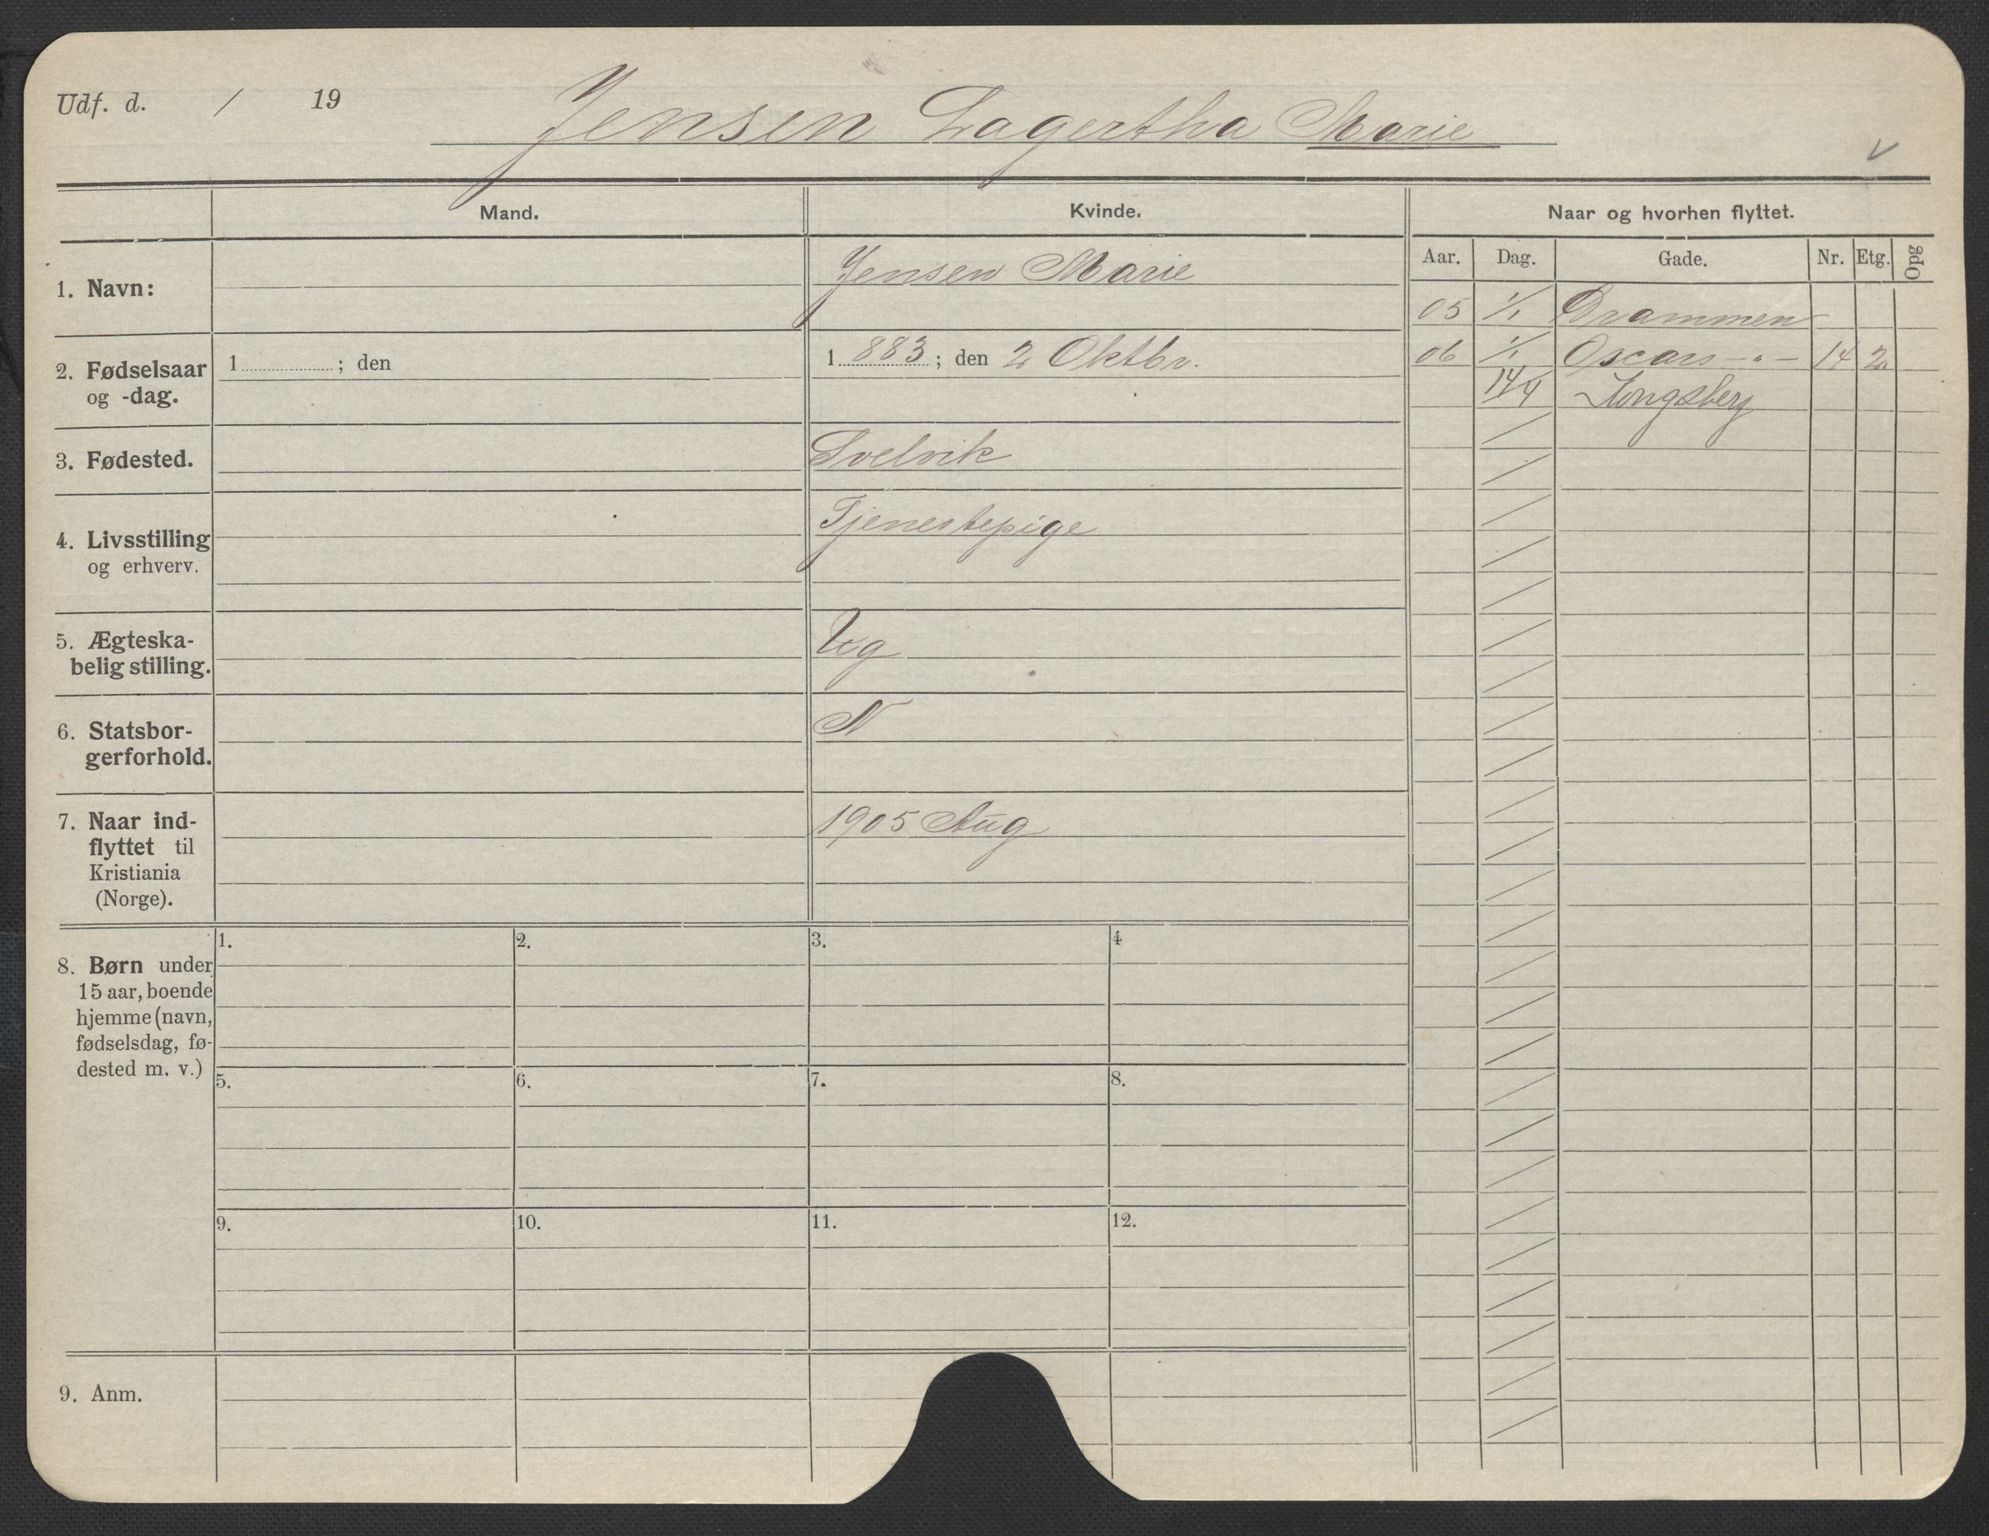 Udf. d. / 19
Jensen Lagertha Marie
Mand. Kvinde. Naar og hvorhen flyttet.
Aar. Dag. Gade. Nr. Etg. Opg
1. Navn: Jensen Marie
05 1/1 Drammen
2. Fødselsaar og -dag. 1 ; den 1 883 ; den 2 Oktbr.
06 1/1 Oscars - " - 14 2
14/4 Kongsberg
3. Fødested. Svelvik
4. Livsstilling og erhverv. Tjenestepige
5. Ægteska-
belig stilling. Ug
6. Statsbor-
gerforhold. N
7. Naar ind-
flyttet til
Kristiania
(Norge). 1905 Aug
8. Børn under
15 aar, boende
hjemme (navn,
fødselsdag, fø-
dested m. v.)
1. 2. 3. 4
5. 6. 7. 8.
9. 10. 11. 12.
9. Anm.